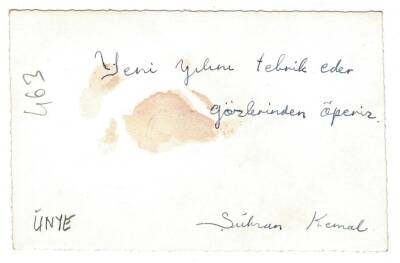 Yeni yılını tebrik eder
gözlerinden öperiz.
463
ÜNYE
Şükran Kemal